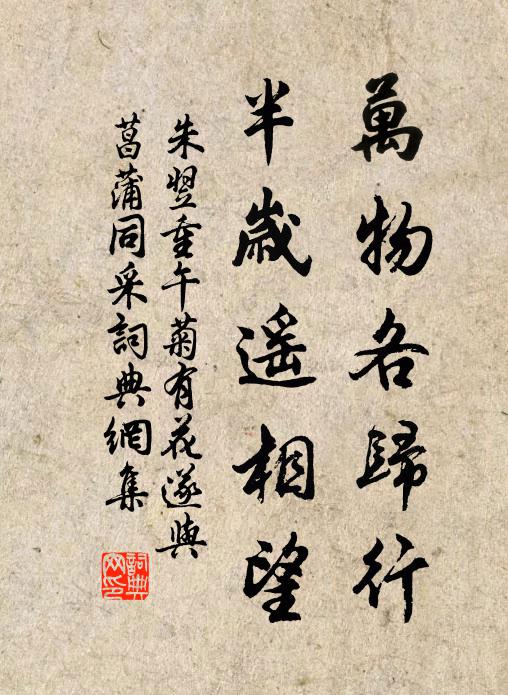 萬物各歸行
半歲遥相望
朱翌重午菊有花遂與
菖蒲同采詞典網集
詞典
网印